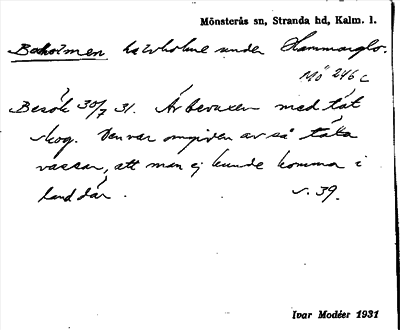 Mönsterås sn, Stranda hd, Kalm. l.
Boholmen halvholme under Hammarglo.
Mö 246 c
Besök 30/7 31. Är bevuxen med tät
skog. Den var omgiven av så täta
vassar, att man ej kunde komma i
land där. s. 39.
Ivar Modéer 1931